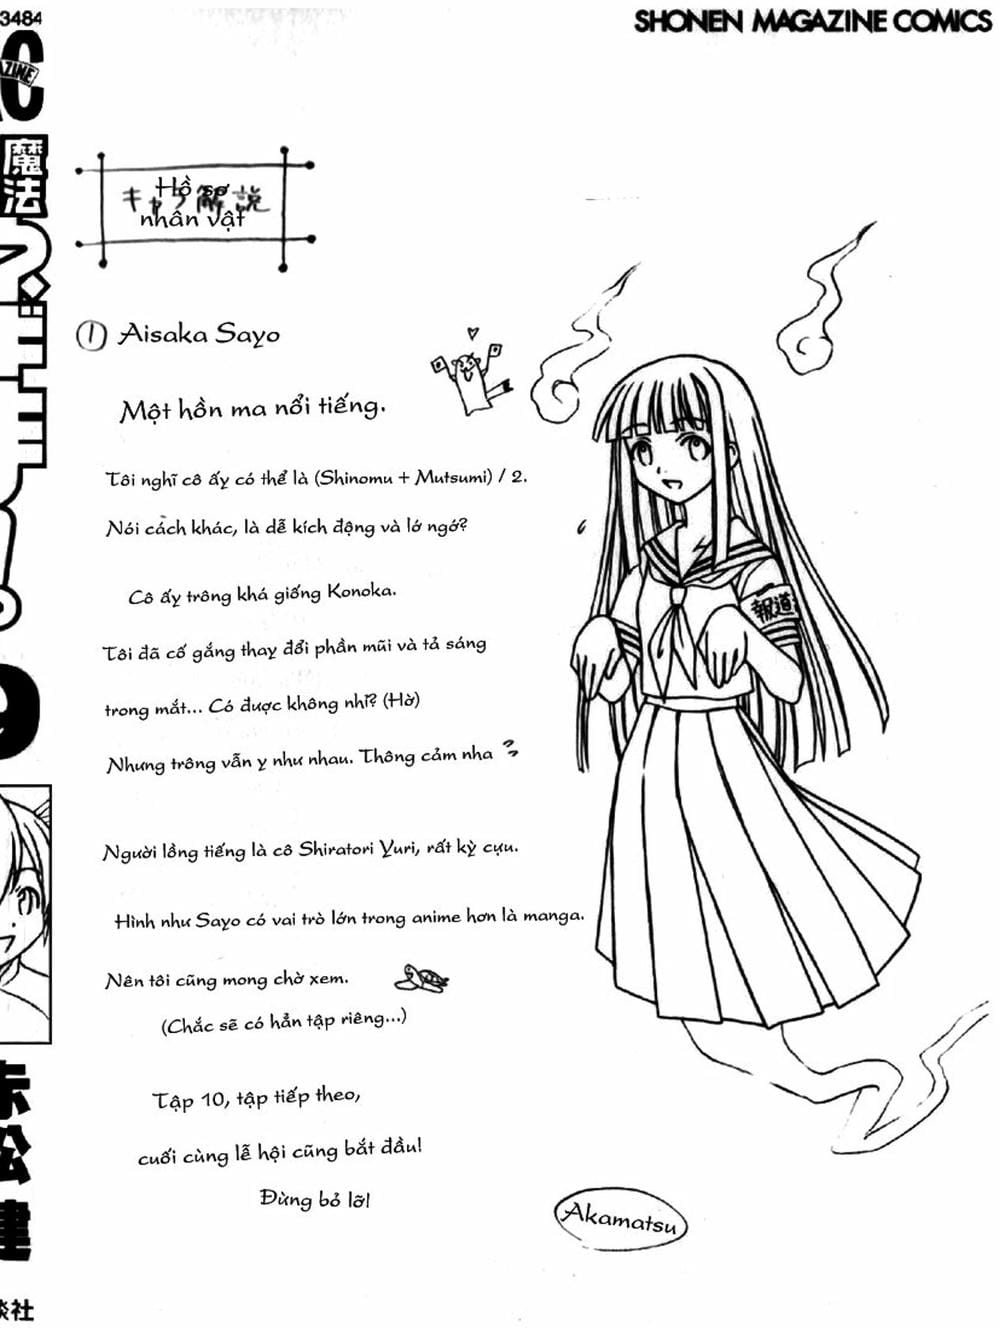 3484
SHONEN MAGAZINE COMICS
魔法
9
Hồ sơ
nhân vật
① Aisaka Sayo
Một hồn ma nổi tiếng.
Tôi nghĩ cô ấy có thể là (Shinomu + Mutsumi) / 2.
Nói cách khác, là dễ kích động và lớ ngớ?
Cô ấy trông khá giống Konoka.
Tôi đã cố gắng thay đổi phần mũi và tả sáng
trong mắt... Có được không nhỉ? (Hờ)
Nhưng trông vẫn y như nhau. Thông cảm nha
Người lồng tiếng là cô Shiratori Yuri, rất kỳ cựu.
Hình như Sayo có vai trò lớn trong anime hơn là manga.
Nên tôi cũng mong chờ xem.
(Chắc sẽ có hẳn tập riêng...)
Tập 10, tập tiếp theo,
cuối cùng lễ hội cũng bắt đầu!
Đừng bỏ lỡ!
Akamatsu
報道
赤松健
談社